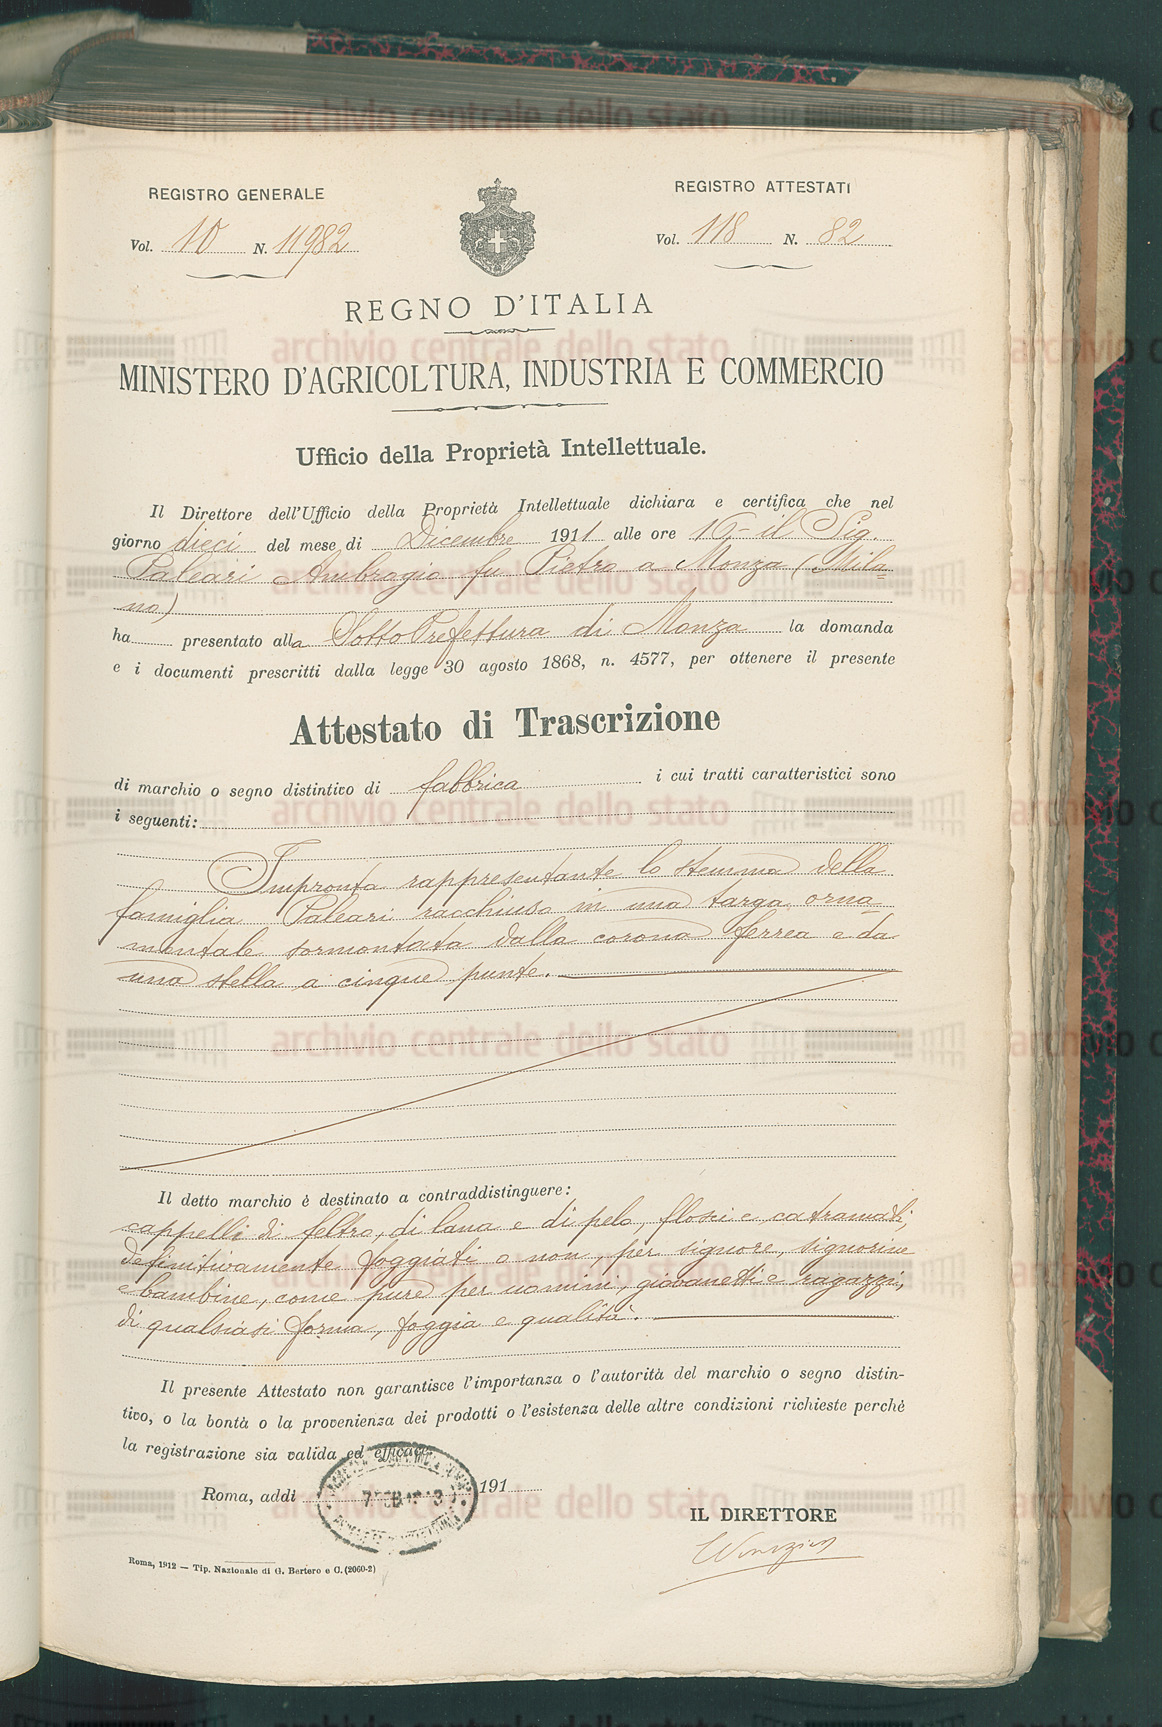 REGISTRO GENERALE
Vol. 10 N. 11982
REGISTRO ATTESTATI
Vol. 118 N. 82
REGNO D'ITALIA
MINISTERO D'AGRICOLTURA, INDUSTRIA E COMMERCIO
Ufficio della Proprietà Intellettuale.
Il Direttore dell'Ufficio della Proprietà Intellettuale dichiara e certifica che nel
giorno dieci del mese di Dicembre 1911 alle ore 16 - il Sig.
Paleari Ambrogio fu Pietro a Monza (Mila=
no)
ha presentato alla Sotto Prefettura di Monza la domanda
e i documenti prescritti dalla legge 30 agosto 1868, n. 4577, per ottenere il presente
Attestato di Trascrizione
di marchio o segno distintivo di fabbrica i cui tratti caratteristici sono
i seguenti:
Impronta rappresentante lo stemma della
famiglia Paleari racchiuso in una targa orna=
mentale sormontata dalla corona ferrea e da
una stella a cinque punte.
Il detto marchio è destinato a contraddistinguere:
cappelli di feltro, di lana e di pelo, flosci e catramati,
definitivamente foggiati o non, per signore, signorine
e bambine, come pure per uomini, giovanetti e ragazzi,
di qualsiasi forma, foggia e qualità.
Il presente Attestato non garantisce l'importanza o l'autorità del marchio o segno distin-
tivo, o la bontà o la provenienza dei prodotti o l'esistenza delle altre condizioni richieste perchè
la registrazione sia valida ed efficace.
Roma, addì 191
IL DIRETTORE
Roma, 1912 — Tip. Nazionale di G. Bertero e C. (2060-2)
archivio centrale dello stato